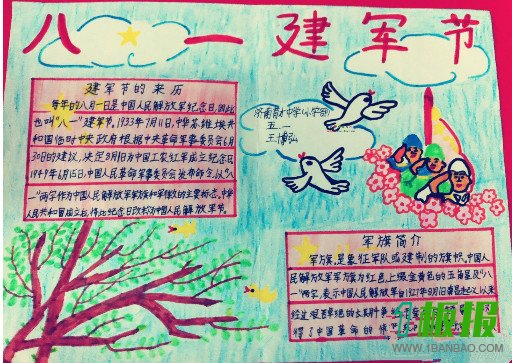 八一建军节
建军节的来历
每年的八月一日是中国人民解放军纪念日,因此
也叫“八一”建军节,1933年7月11日,中华苏维埃共
和国临时中央政府根据中央革命军事委员会6月
30日的建议,决定8月1日为中国工农红军成立纪念日
1949年6月15日,中国人民革命军事委员会发布命令,以“八
一”两字作为中国人民解放军军旗和军徽的主要标志。中华
人民共和国成立后,将此纪念日改称为中国人民解放军建军节。
济南育才中学(小学部)
五.二
王博弘
军旗简介
军旗,是象征军队或建制的旗帜.中国人
民解放军军旗为红色,上缀金黄色的五角星及“八
一”两字,表示中国人民解放军自1927年8月1日南昌起义以来
经过
得了中国革命的伟大
板报
WWW.1BANBAO.COM